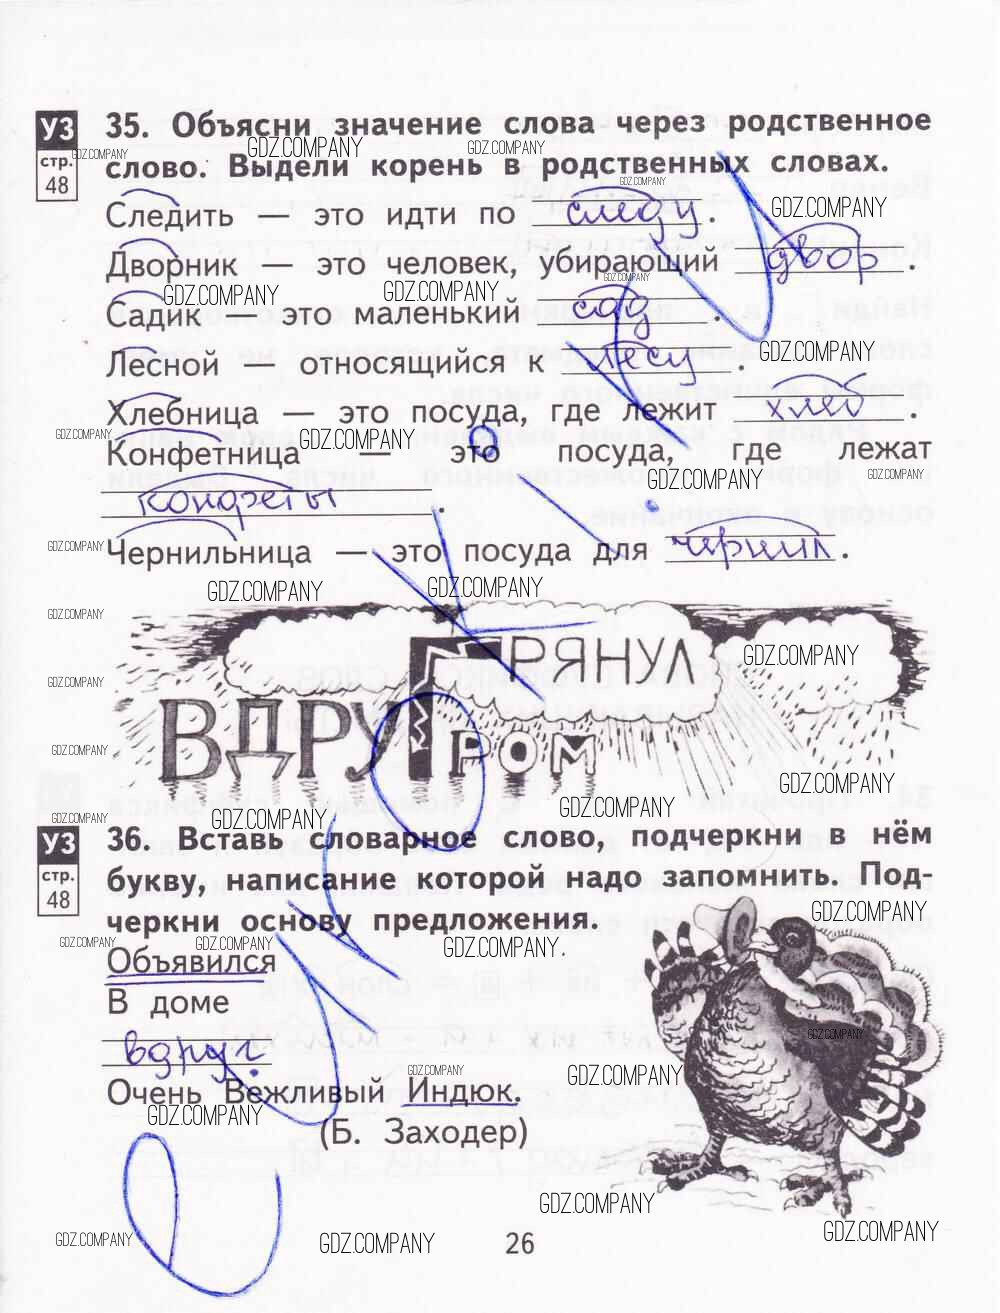 УЗ
стр.
48
35. Объясни значение слова через родственное
слово. Выдели корень в родственных словах.
Следить — это идти по следу.
Дворник — это человек, убирающий двор.
Садик — это маленький сад.
Лесной — относящийся к лесу.
Хлебница — это посуда, где лежит хлеб.
Конфетница — это посуда, где лежат
конфеты.
Чернильница — это посуда для чернил.
ГРЯНУЛ
ВДРУГ РОМ
УЗ
стр.
48
36. Вставь словарное слово, подчеркни в нём
букву, написание которой надо запомнить. Под-
черкни основу предложения.
Объявился
В доме
вдруг
Очень Вежливый Индюк.
(Б. Заходер)
26
GDZ.COMPANY